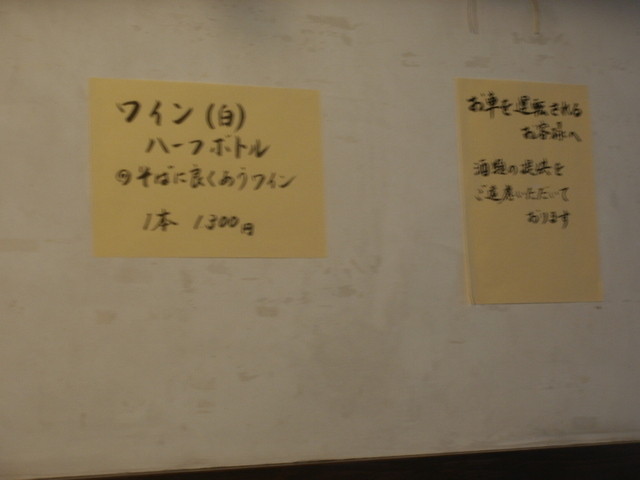 ワイン(白)
ハーフボトル
そばに良くあうワイン
1本 1300円
お車を運転される
お客様へ
酒類の提供を
ご遠慮いただいて
おります